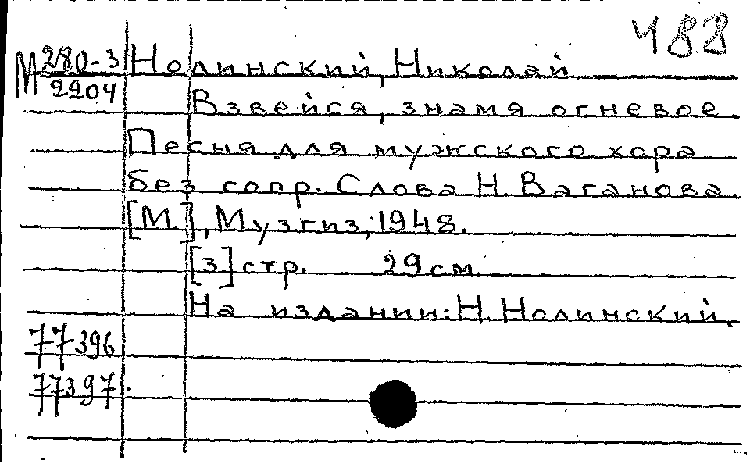 488
М 280-3 Нолинский, Николай
2204
Взвейся, знамя огневое
Песня для мужского хора
без сопр. Слова Н. Ваганова
[М.], Музгиз, 1948.
[3] стр. 29 см.
На издании: Н. Нолинский.
77396
77397.